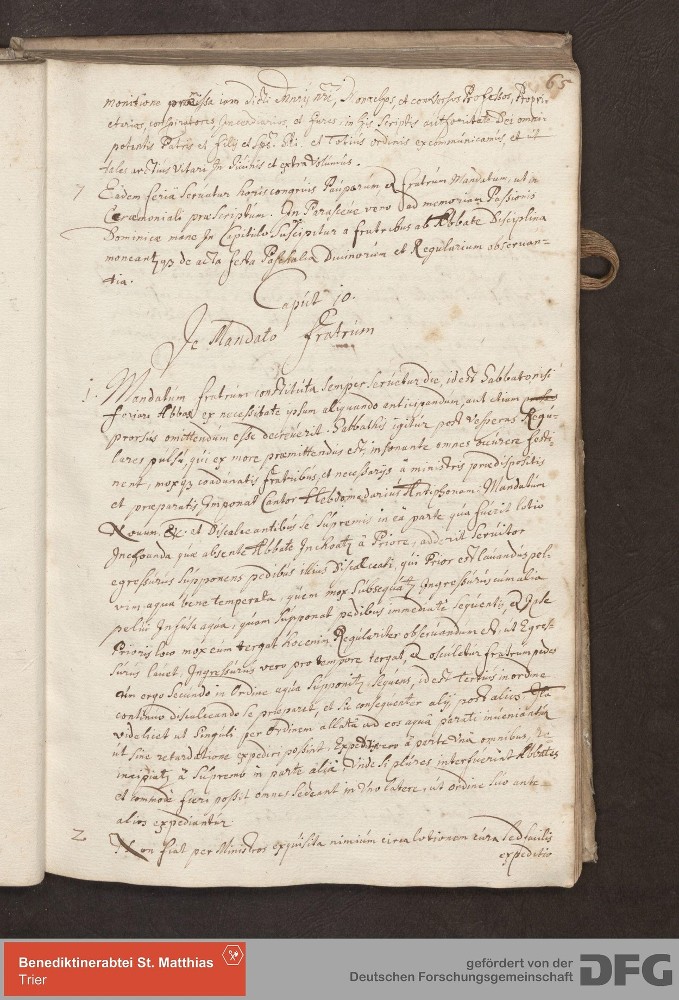 65
monitione praemissa iam dicti Monasterij nostri, Monachos, et conversos Professos, Propri-
etarios, conspiratores Incendiarios, et fures, in his scriptis authoritate Dei omni-
potentis Patris et filij et Sps. Sti. et Totius ordinis excommunicamus, et ut
tales arctius vitari In Divinis et extra volumus.
7 Eadem feria Servatur horis congruis Pauperum et Fratrum Mandatum, ut in
Caeremoniali praescriptum. In Parasceve vero ad memoriam Passionis
Dominicae mane In Capitulo Suscipitur a fratribus ab Abbate Disciplina
moneantq3 de acta festa Paschalia Divinorum et Regularium observan-
tia.
Caput 10.
De Mandato Fratrum
1. Mandatum fratrum constituta semper servetur die, id est Sabbato nisi
feriari Abbas ex necessitate ipsum aliquando anticipandum, aut etiam
prorsus omittendum esse decreverit. Sabbathis igitur post vesperas Regu-
lares pulsu, qui ex more praemittendus est, insonante omnes occurere festi-
nent, moxq3 coadunatis fratribus, et necessarijs a ministris praedispositis
et praeparatis Imponat Cantor Hebdomadarius Antiphonam Mandatum
Novum. &c. et Discalceantibus se Supremis in ea parte qua fuerit lotio
Inchoanda quae absente Abbate Inchoatr a Priore, adderit Servitor
egressurus Supponens pedibus illius Discalceati, qui Prior est lavandus pel-
vim, aqua bene temperata, quem mox Subsequatr Ingressurus cum alia
pelvi Infusa aqua, quam Supponat pedibus immediate Sequentis, et Ipse
Prioris loco mox eum tergat hoc enim Regulariter observandum est, ut Egres-
surus lavet, Ingressurus vero pro tempore tergat, et osculetur fratrum pedes
Cum ergo Secundo in Ordine aqua Supponitr, Sequens, id est tertius in ordine
continuo discalceando se praeparet, et Sic consequenter alij post alios Ita
videlicet ut Singuli per Ordinem allata ad eos aqua parati inveniantur
ut Sine retardatione expediri possint, Expeditis vero a parte una omnibus, Re
incipiatr a Supremo in parte alia, Unde Si plures interfuerint Abbates
et commode fieri possit omnes Sedeant in Uno latere, ut ordine Suo ante
alios expediantur.
2 Non fiat per Ministros exquisita nimium circa lotionem cura Sed facilis
expeditio
Benediktinerabtei St. Matthias
Trier
gefördert von der
Deutschen Forschungsgemeinschaft
DFG